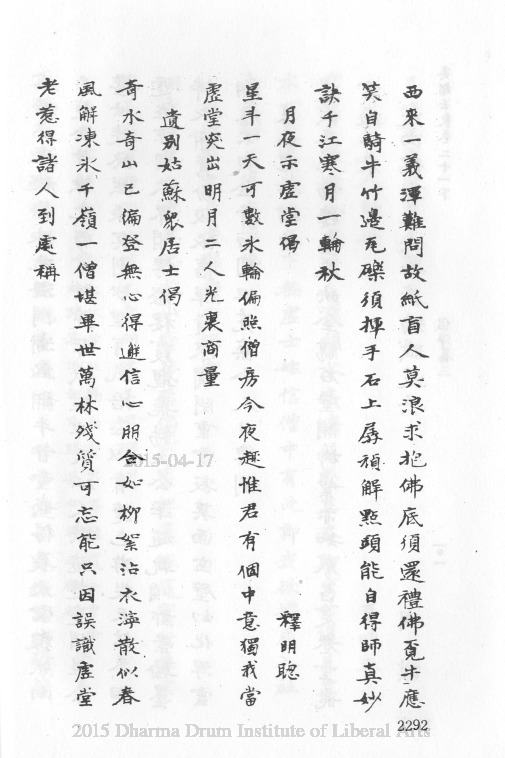 西來一義渾難問故紙盲人莫浪求抱佛底須還禮佛覔牛應
笑自騎牛竹邊瓦礫須揮手石上孱頑解㸃頭能自得師真妙
訣千江寒月一輪秋
月夜示虛堂偈
釋明聰
星斗一天可數氷輪偏照僧房今夜趣惟君有個中意獨我當
虛堂突出明月二人光裏商量
遺別姑蘇衆居士偈
奇水奇山已徧登無心得遊信心朋會如柳絮沾衣濘散似春
風解凍氷千嶺一僧堪畢世萬林殘質可忘能只因誤識虛堂
老惹得諸人到處稱
2015-04-17
2292
2015 Dharma Drum Institute of Liberal Arts